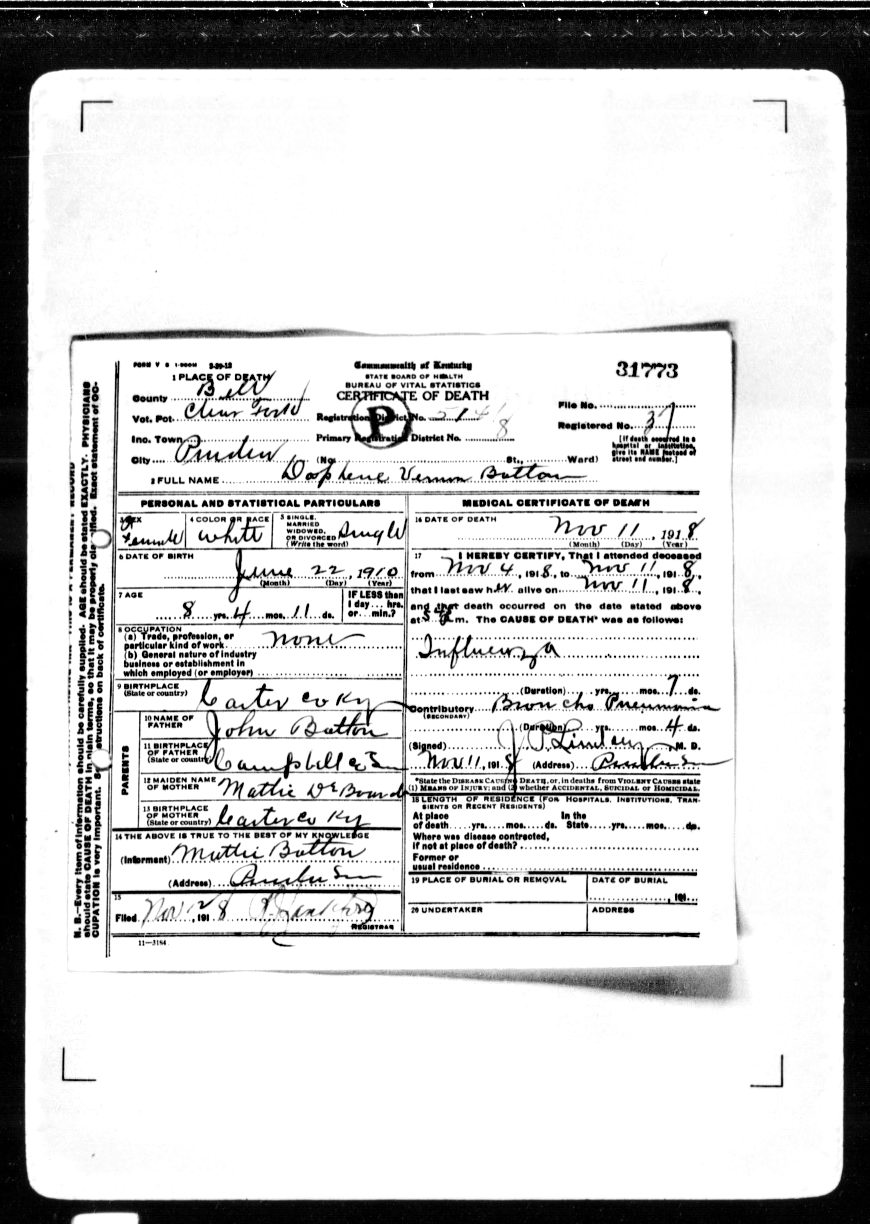 FORM V S 1-500M 3-20-12
Commonwealth of Kentucky
STATE BOARD OF HEALTH
BUREAU OF VITAL STATISTICS
CERTIFICATE OF DEATH
31773
1 PLACE OF DEATH
County Bell
Vot. Pct. Clear Fork
Inc. Town
City Pruden (No. St., Ward)
Registration District No. 514
Primary Registration District No. 8
P
File No.
Registered No. 37
[If death occurred in a hospital or institution, give its NAME instead of street and number.]
2 FULL NAME Vernon Batton
PERSONAL AND STATISTICAL PARTICULARS
3 SEX Female
4 COLOR OR RACE White
5 SINGLE, MARRIED WIDOWED, OR DIVORCED (Write the word) Single
6 DATE OF BIRTH
June 22, 1910
(Month) (Day) (Year)
7 AGE
8 yrs. 4 mos. 11 ds.
IF LESS than 1 day... hrs. or... min.?
8 OCCUPATION
(a) Trade, profession, or particular kind of work none
(b) General nature of industry
business or establishment in
which employed (or employer)
9 BIRTHPLACE
(State or country) Carter co Ky
PARENTS
10 NAME OF FATHER John Batton
11 BIRTHPLACE OF FATHER (State or country) Campbell co
12 MAIDEN NAME OF MOTHER Mattie De Board
13 BIRTHPLACE OF MOTHER (State or country) Carter co Ky
14 THE ABOVE IS TRUE TO THE BEST OF MY KNOWLEDGE
(Informant) Mattie Batton
(Address)
15
Filed Nov 12, 1918
REGISTRAR
11—3184
MEDICAL CERTIFICATE OF DEATH
16 DATE OF DEATH
Nov 11, 1918
(Month) (Day) (Year)
17 I HEREBY CERTIFY, That I attended deceased
from Nov 4, 1918, to Nov 11, 1918,
that I last saw her alive on Nov 11, 1918,
and that death occurred on the date stated above
at 5 m. The CAUSE OF DEATH* was as follows:
Influenza
(Duration) yrs. mos. 7 ds.
Contributory Broncho Pneumonia
(SECONDARY)
(Duration) yrs. mos. 4 ds.
(Signed) J. P. M. D.
Nov 11, 1918 (Address)
*State the DISEASE CAUSING DEATH, or, in deaths from VIOLENT CAUSES state
(1) MEANS OF INJURY; and (2) whether ACCIDENTAL, SUICIDAL or HOMICIDAL.
18 LENGTH OF RESIDENCE (FOR HOSPITALS, INSTITUTIONS, TRANSIENTS OR RECENT RESIDENTS)
At place In the
of death yrs. mos. ds. State yrs. mos. ds.
Where was disease contracted,
if not at place of death?
Former or
usual residence
19 PLACE OF BURIAL OR REMOVAL
DATE OF BURIAL
, 191
20 UNDERTAKER
ADDRESS
N. B.—Every item of information should be carefully supplied. AGE should be stated EXACTLY. PHYSICIANS
should state CAUSE OF DEATH in plain terms, so that it may be properly classified. Exact statement of OC-
CUPATION is very important. See instructions on back of certificate.